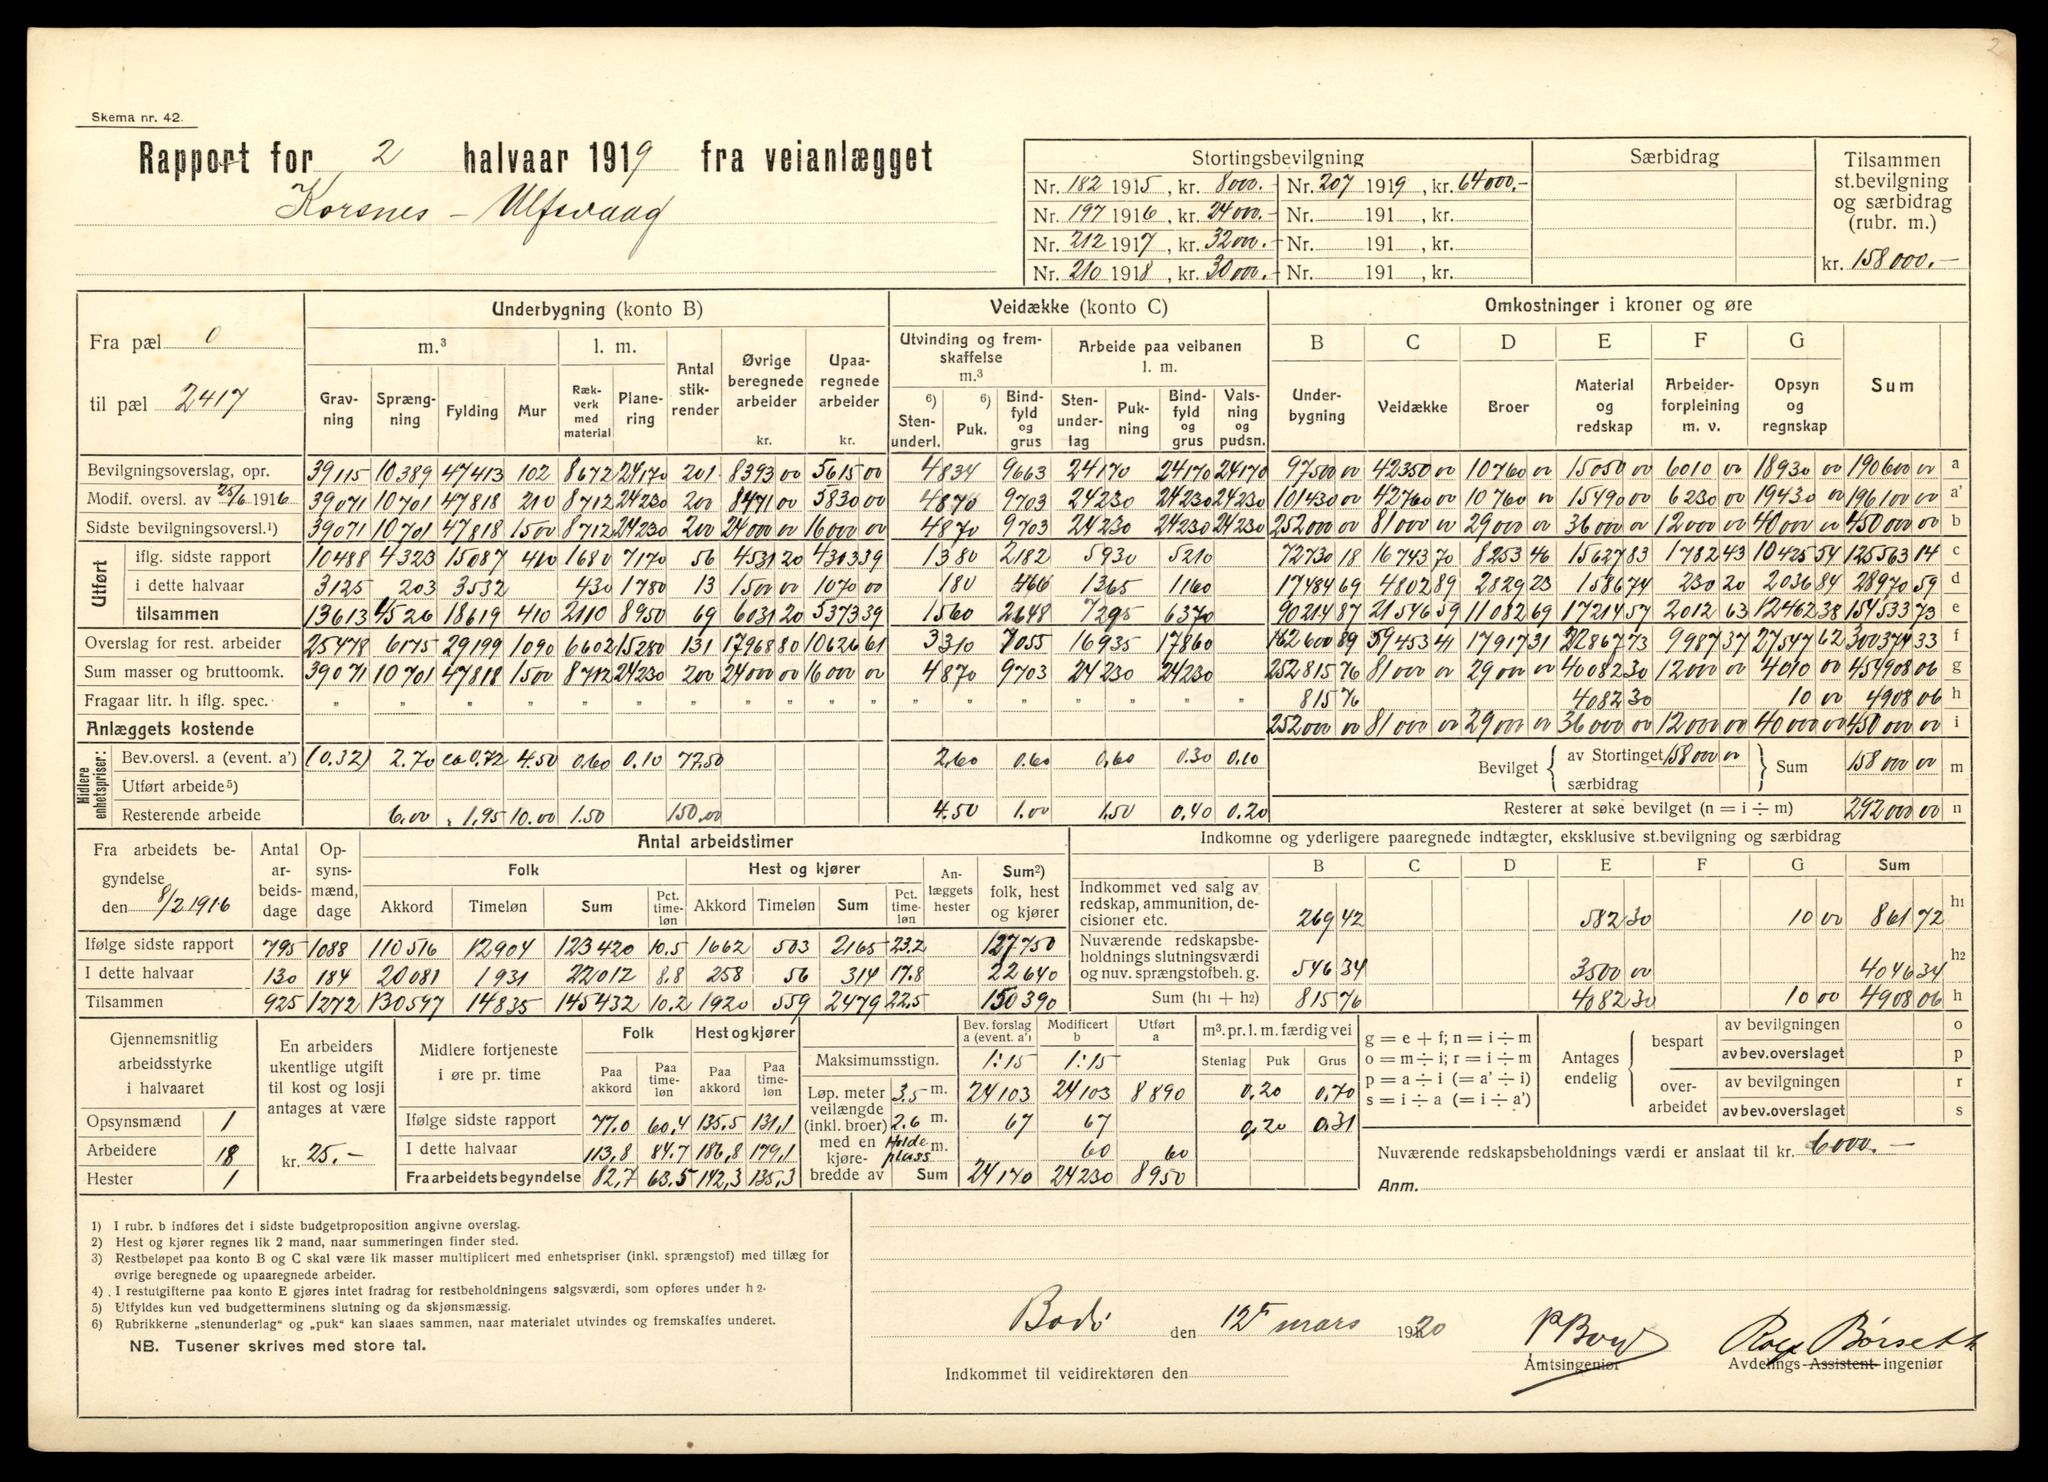 2
Skema nr. 42.
Rapport for 2 halvaar 1919 fra veianlægget
Korsnes - Ulfsvaag
Stortingsbevilgning | Særbidrag | Tilsammen st.bevilgning og særbidrag (rubr. m.)
Nr. 182 1915, kr. 8000.- Nr. 207 1919, kr. 64000,-
Nr. 197 1916, kr. 24000.- Nr. 191 , kr.
Nr. 212 1917, kr. 32000.- Nr. 191 , kr.
Nr. 210 1918, kr. 30000.- Nr. 191 , kr.
kr. 158000.-
Fra pæl 0
til pæl 2417
Underbygning (konto B) | Veidække (konto C) | Omkostninger i kroner og øre
m.³ | l. m. | Antal stikrender | Øvrige beregnede arbeider kr. | Upaaregnede arbeider kr. | Utvinding og fremskaffelse m.³ | Arbeide paa veibanen l. m. | B | C | D | E | F | G | Sum
Gravning | Sprængning | Fylding | Mur | Rækverk med material | Planering | 6) Stenunderl. | 6) Puk. | Bindfyld og grus | Stenunderlag | Pukning | Bindfyld og grus | Valsning og pudsn. | Underbygning | Veidække | Broer | Material og redskap | Arbeiderforpleining m. v. | Opsyn og regnskap
Bevilgningsoverslag, opr. 39115 10389 47413 102 8672 24170 201 8393 00 5615 00 4834 9663 24170 24170 24170 97500 00 42350 00 10760 00 15050 00 6010 00 18930 00 190600 00 a
Modif. oversl. av 25/6 1916 39071 10701 47818 210 8712 24230 200 8471 00 5830 00 4870 9703 24230 24230 24230 101430 00 42760 00 10760 00 15490 00 6230 00 19430 00 196100 00 a'
Sidste bevilgningsoversl.¹) 39071 10701 47818 1500 8712 24230 200 24000 00 16000 00 4870 9703 24230 24230 24230 252000 00 81000 00 29000 00 36000 00 12000 00 40000 00 450000 00 b
Utført
iflg. sidste rapport 10488 4323 15087 410 1680 7170 56 4531 20 4303 39 1380 2182 5930 5210 72730 18 16743 70 8253 46 15627 83 1782 43 10425 54 125563 14 c
i dette halvaar 3125 203 3532 430 1780 13 1500 00 1070 00 180 466 1365 1160 17484 69 4802 89 2829 23 1586 74 230 20 2036 84 28970 59 d
tilsammen 13613 4526 18619 410 2110 8950 69 6031 20 5373 39 1560 2648 7295 6370 90214 87 21546 59 11082 69 17214 57 2012 63 12462 38 154533 73 e
Overslag for rest. arbeider 25478 6175 29199 1090 6602 15280 131 17968 80 10626 61 3310 7055 16935 17860 162600 89 59453 41 17917 31 22867 73 9987 37 27547 62 300374 33 f
Sum masser og bruttoomk. 39071 10701 47818 1500 8712 24230 200 24000 00 16000 00 4870 9703 24230 24230 252815 76 81000 00 29000 00 40082 30 12000 00 4010 00 454908 06 g
Fragaar litr. h iflg. spec. " " " " " " " " " " " " " " " 815 76 4082 30 10 00 4908 06 h
Anlæggets kostende 252000 00 81000 00 29000 00 36000 00 12000 00 40000 00 450000 00 i
Midlere enhetspriser:
Bev.oversl. a (event. a') (0.32) 2.70 ca 0.72 4.50 0.60 0.10 77.50 2.60 0.60 0.60 0.30 0.10
Utført arbeide⁵)
Resterende arbeide 6.00 " 1.95 10.00 1.50 150.00 4.50 1.00 1.50 0.40 0.20
Bevilget { av Stortinget 158000 00 særbidrag } Sum 158000 00 m
Resterer at søke bevilget (n = i ÷ m) 292000 00 n
Fra arbeidets begyndelse den 8/2 1916
Antal arbeidsdage | Opsynsmænd, dage | Antal arbeidstimer
Folk | Hest og kjører | Anlæggets hester | Sum²) folk, hest og kjører
Akkord | Timeløn | Sum | Pct. timeløn | Akkord | Timeløn | Sum | Pct. timeløn
Ifølge sidste rapport 795 1088 110516 12904 123420 10.5 1662 503 2165 23.2 127750
I dette halvaar 130 184 20081 1931 22012 8.8 258 56 314 17.8 22640
Tilsammen 925 1272 130597 14835 145432 10.2 1920 559 2479 22.5 150390
Indkomne og yderligere paaregnede indtægter, eksklusive st.bevilgning og særbidrag
B | C | D | E | F | G | Sum
Indkommet ved salg av redskap, ammunition, decisioner etc. 269 42 582 30 10 00 861 72 h1
Nuværende redskapsbeholdnings slutningsværdi og nuv. sprængstofbeh. g. 546 34 3500 00 4046 34 h2
Sum (h1 + h2) 815 76 4082 30 10 00 4908 06 h
Gjennemsnitlig arbeidsstyrke i halvaaret
Opsynsmænd 1
Arbeidere 18
Hester 1
En arbeiders ukentlige utgift til kost og losji antages at være
kr. 25.-
Midlere fortjeneste i øre pr. time
Folk | Hest og kjører
Paa akkord | Paa timeløn | Paa akkord | Paa timeløn
Ifølge sidste rapport 77.0 60,4 135,5 131,1
I dette halvaar 113,8 84.7 186,8 179,1
Fra arbeidets begyndelse 82,7 63.5 142,3 135,3
Bev. forslag a (event. a') | Modificert b | Utført a
Maksimumsstign. 1:15 1:15
Løp. meter veilængde (inkl. broer) med en kjørebredde av
3.5 m. 24103 24103 8890
2.6 m. 67 67
Møde plass m. 60 60
Sum 24170 24230 8950
m³. pr. l. m. færdig vei
Stenlag | Puk | Grus
0,20 0,70
0,20 0,31
g = e + f; n = i ÷ m
o = m ÷ i; r = i ÷ m
p = a ÷ i (= a' ÷ i)
s = i ÷ a (= i ÷ a')
Antages endelig
bespart av bevilgningen o
av bev.overslaget p
overarbeidet av bevilgningen r
av bev.overslaget s
Nuværende redskapsbeholdnings værdi er anslaat til kr. 6000.-
Anm.
1) I rubr. b indføres det i sidste budgetproposition angivne overslag.
2) Hest og kjører regnes lik 2 mand, naar summeringen finder sted.
3) Restbeløpet paa konto B og C skal være lik masser multiplicert med enhetspriser (inkl. sprængstof) med tillæg for
øvrige beregnede og upaaregnede arbeider.
4) I restutgifterne paa konto E gjøres intet fradrag for restbeholdningens salgsværdi, som opføres under h 2.
5) Utfyldes kun ved budgetterminens slutning og da skjønsmæssig.
6) Rubrikkerne „stenunderlag" og „puk" kan slaaes sammen, naar materialet utvindes og fremskaffes underet.
NB. Tusener skrives med store tal.
Bodø den 12te mars 1920
Amtsingeniør
Rolf Børseth
Avdelings- Assistent- ingeniør
Indkommet til veidirektøren den